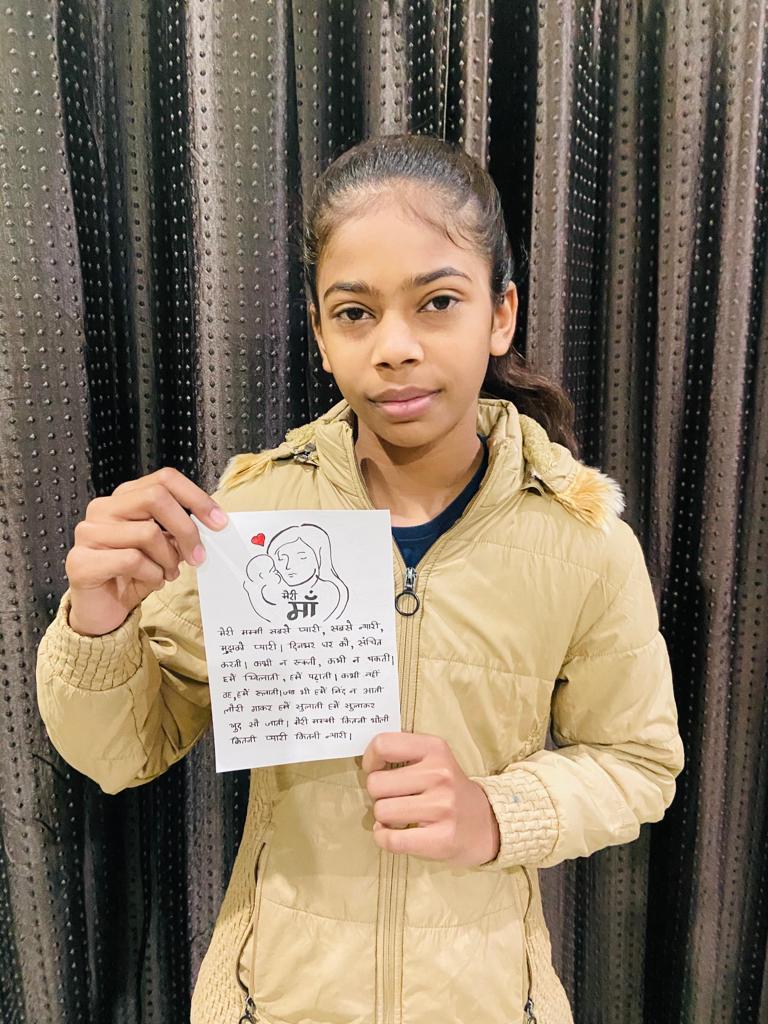 मेरी
माँ
मेरी मम्मी सबसे प्यारी, सबसे न्यारी,
मुझको प्यारी। दिनभर घर को, संचित
करती। कभी न रूकती, कभी न थकती।
हमें खिलाती, हमें पढ़ाती। कभी नहीं
वह, हमें रूलाती। जब भी हमें निंद न आती
लौरी गाकर हमें सुलाती हमें सुलाकर
खुद सो जाती। मेरी मम्मी कितनी भोली
कितनी प्यारी कितनी न्यारी।